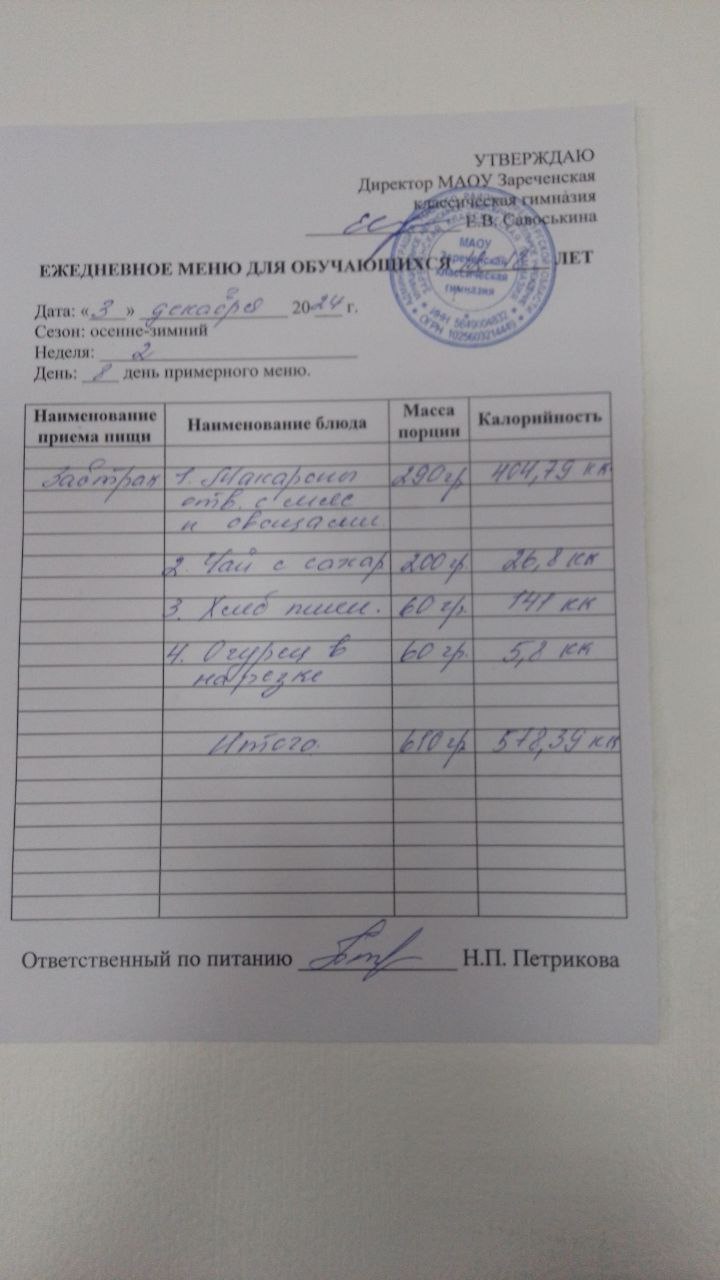 УТВЕРЖДАЮ
Директор МАОУ Зареченская
классическая гимназия
Е.В. Савоськина
ЕЖЕДНЕВНОЕ МЕНЮ ДЛЯ ОБУЧАЮЩИХСЯ 18 ЛЕТ
МАОУ
Зареченская
классическая
гимназия
ИНН 5649004832
ОГРН 1025603214445
Дата: «3» декабря 2024 г.
Сезон: осенне-зимний
Неделя: 2
День: 8 день примерного меню.
Наименование приема пищи Наименование блюда Масса порции Калорийность
Завтрак 1. Макароны 290 гр 404,79 кк
отв. с мяс
и овощами
2. Чай с сахар 200 гр 26,8 кк
3. Хлеб пшен. 60 гр. 141 кк
4. Огурец в 60 гр. 5,8 кк
нарезке
Итого. 610 гр 578,39 кк
Ответственный по питанию Н.П. Петрикова